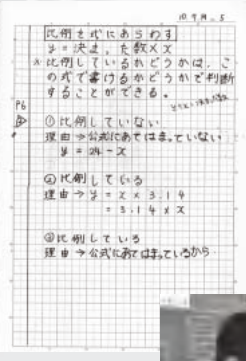 比例を式にあらわす
y＝決まった数×x
※比例しているかどうかは、こ
の式で書けるかどうかで判断
することができる。
P6
①比例していない
理由→公式にあてはまっていない
y＝24－x
②比例している
理由→y＝x×3.14
＝3.14×x
③比例している
理由→公式にあてはまっているから